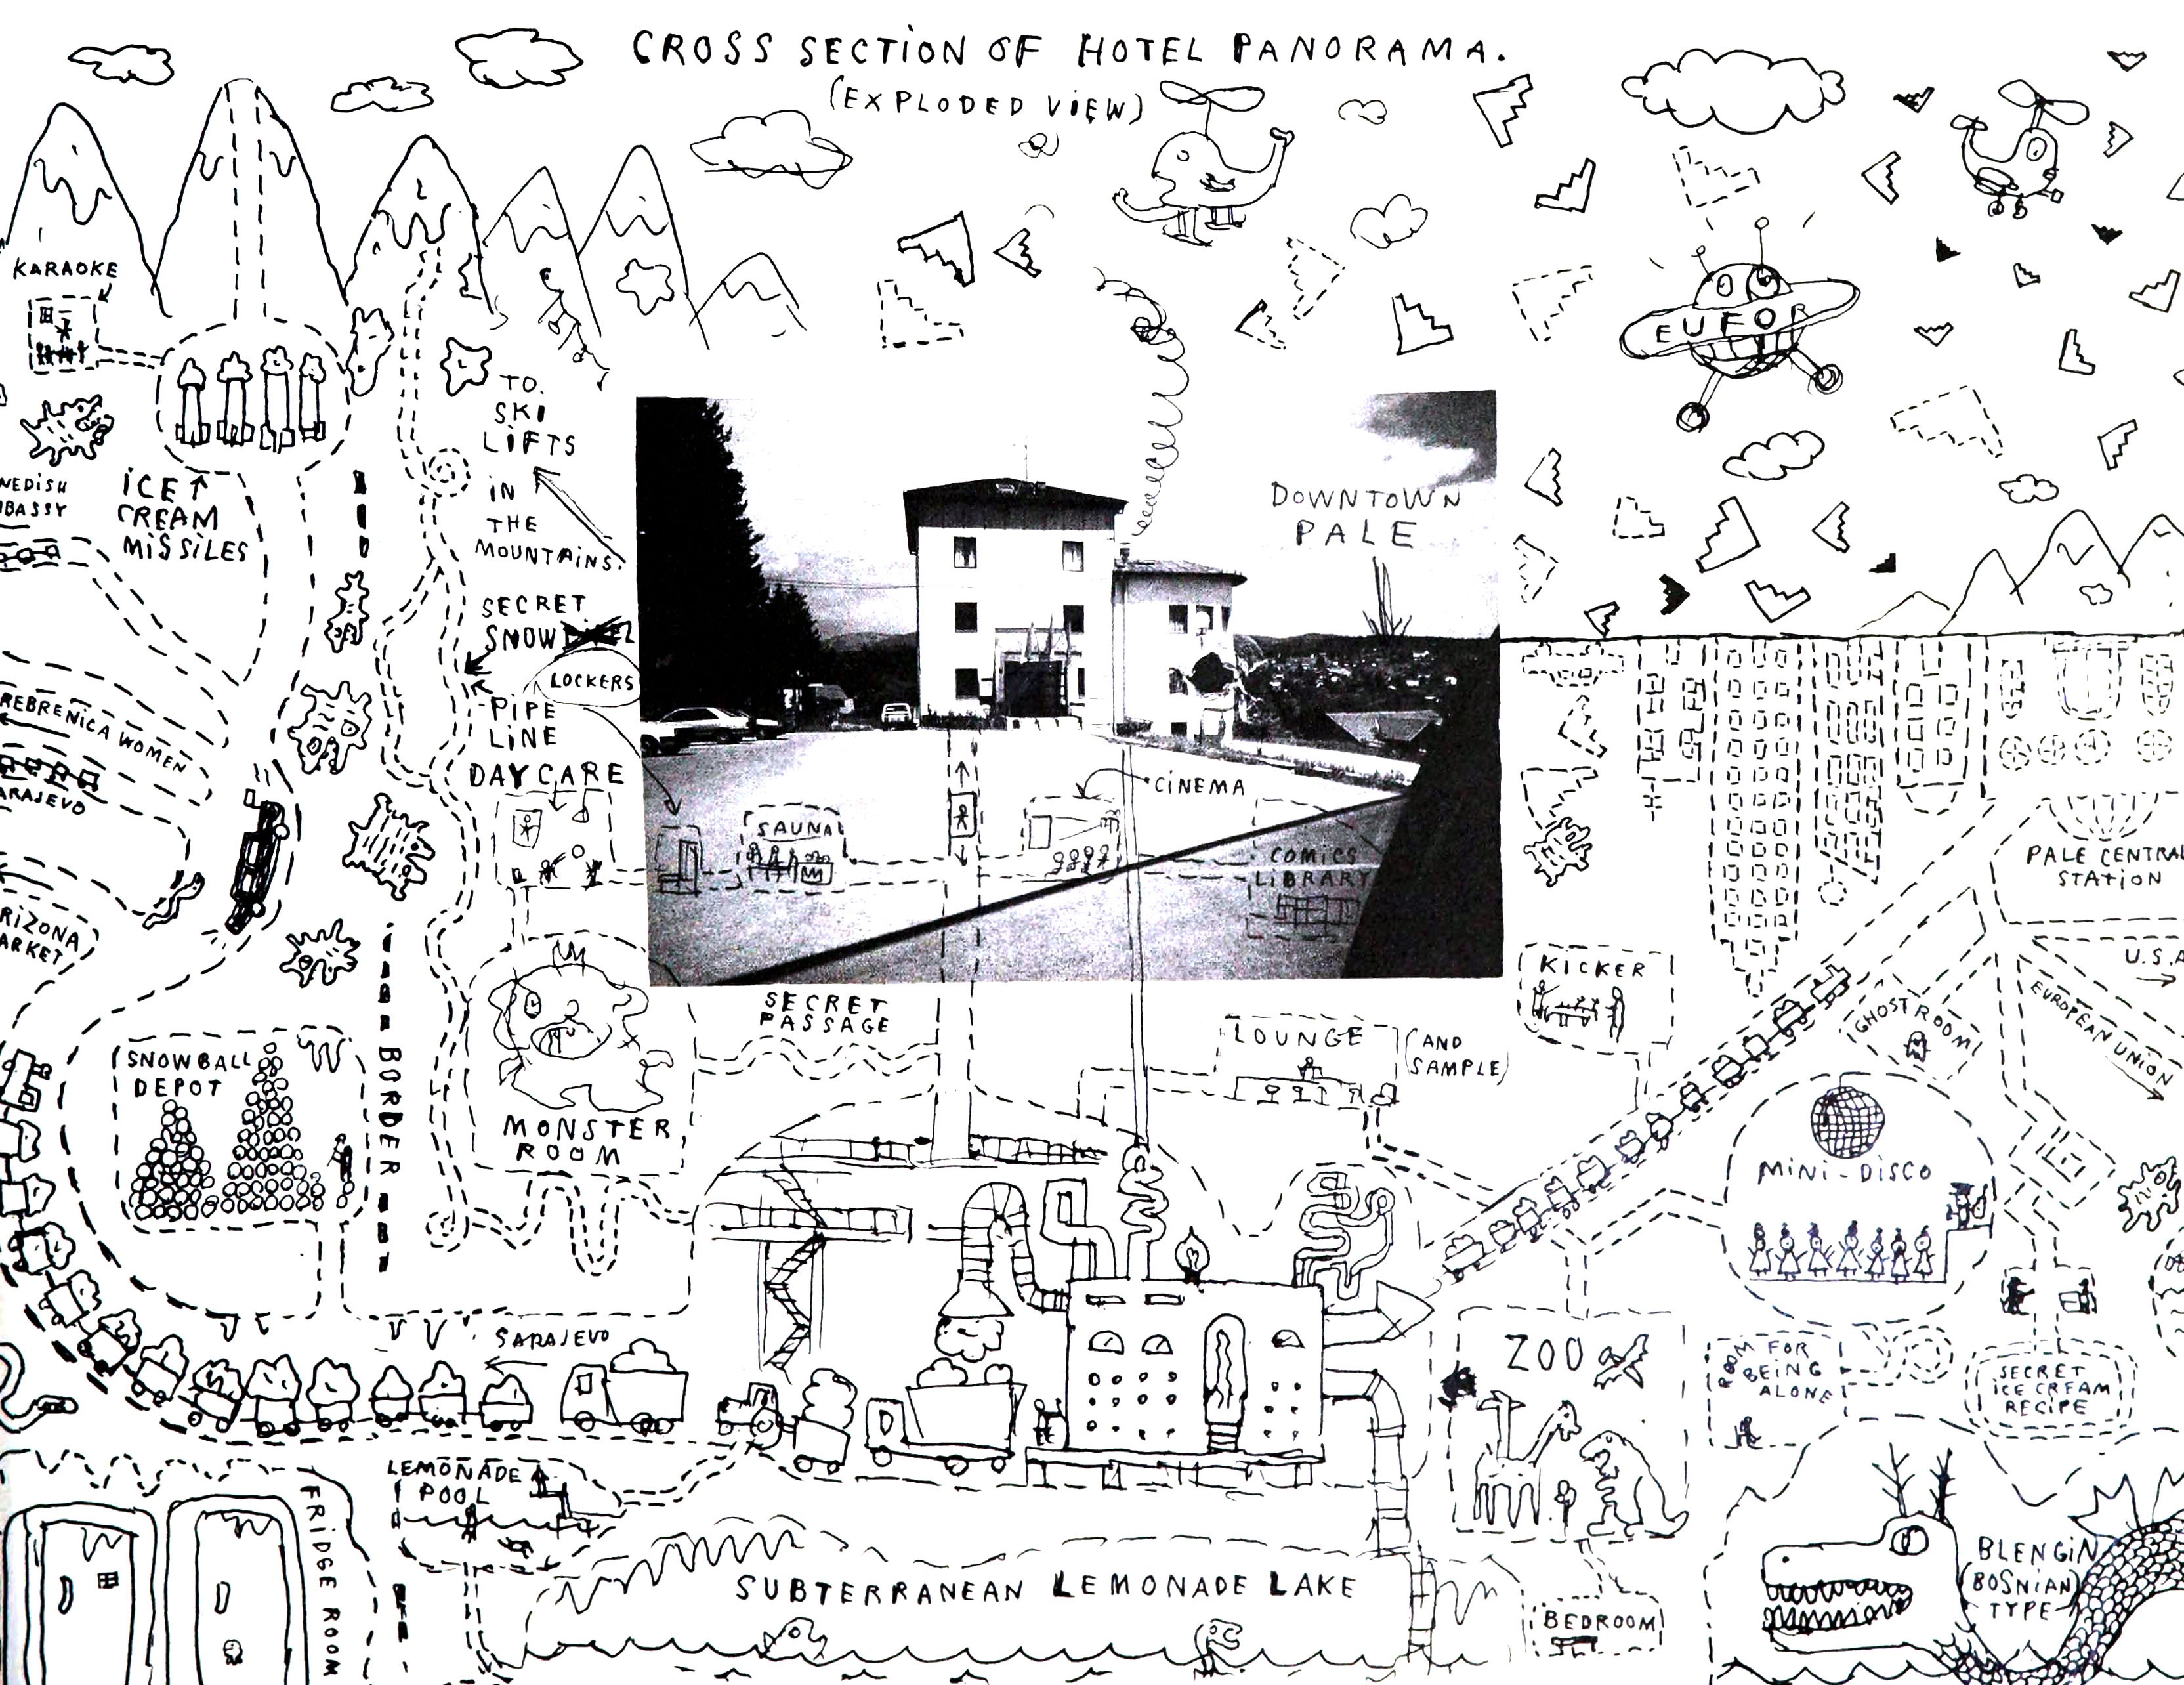 CROSS SECTION OF HOTEL PANORAMA.
(EXPLODED VIEW)
KARAOKE
EUFOR
TO
SKI
LIFTS
IN
THE
MOUNTAINS.
ICE
CREAM
MISSILES
DOWNTOWN
PALE
SECRET
SNOW
LOCKERS
PIPE
LINE
DAY CARE
REBRENICA WOMEN
ARAJEVO
RIZONA
ARKET
CINEMA
SAUNA
COMICS
LIBRARY
PALE CENTRAL
STATION
U.S.A
EUROPEAN UNION
KICKER
GHOST ROOM
SECRET
PASSAGE
LOUNGE
(AND
SAMPLE)
SNOWBALL
DEPOT
BORDER
MONSTER
ROOM
MINI-DISCO
SARAJEVO
ZOO
ROOM FOR
BEING
ALONE
SECRET
ICE CREAM
RECIPE
LEMONADE
POOL
FRIDGE ROOM
SUBTERRANEAN LEMONADE LAKE
BEDROOM
BLENGIN
(BOSNIAN)
TYPE